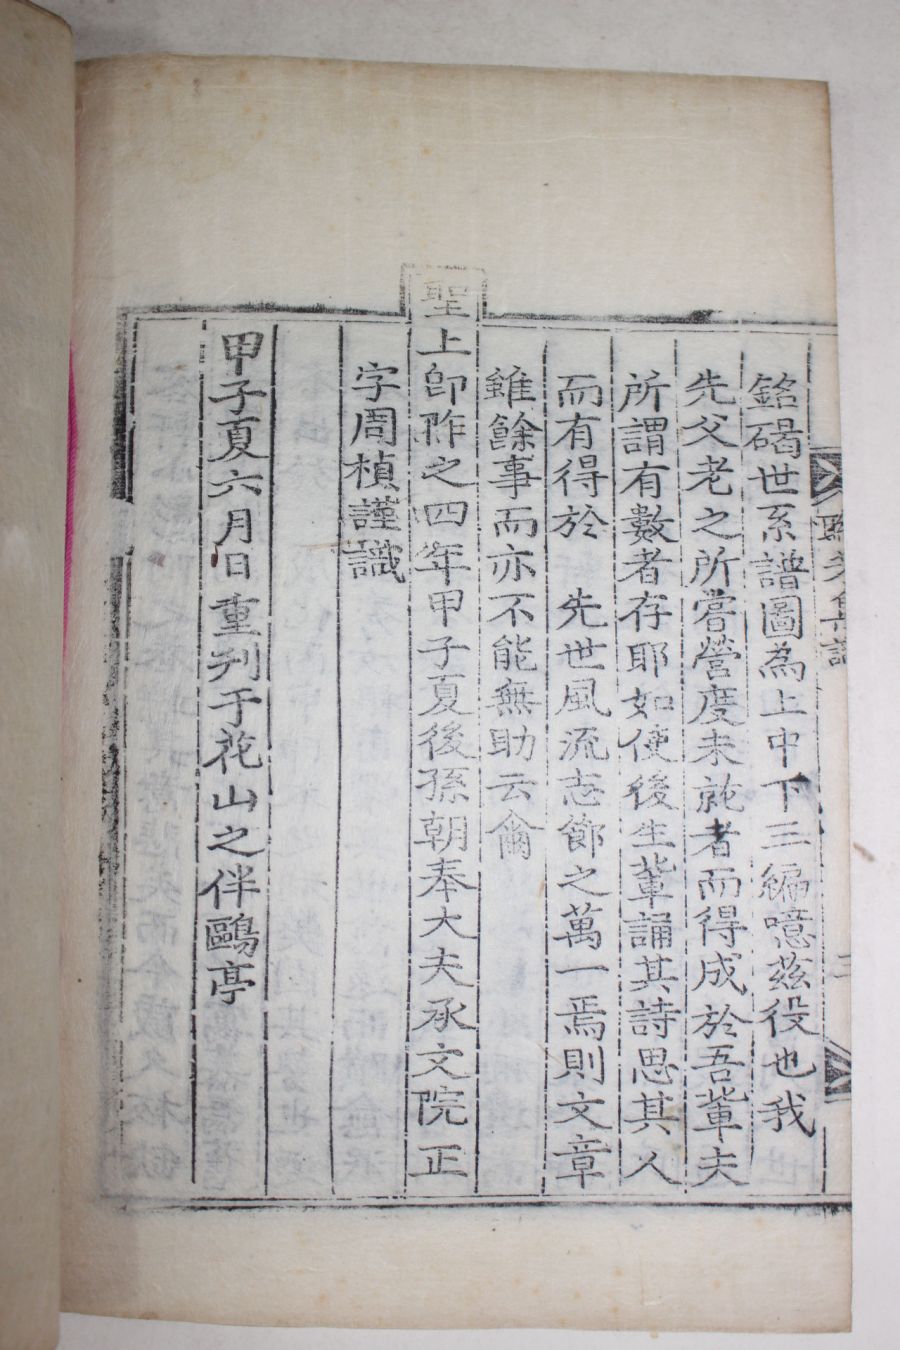 銘碣世系譜圖為上中下三編噫茲役也我
先父老之所嘗營度未就者而得成於吾軰夫
所謂有數者存耶如使後生軰誦其詩思其人
而有得於 先世風流志節之萬一焉則文章
雖餘事而亦不能無助云爾
聖上卽阼之四年甲子夏後孫朝奉大夫承文院正
字周楨謹識
甲子夏六月日重刋于花山之伴鷗亭